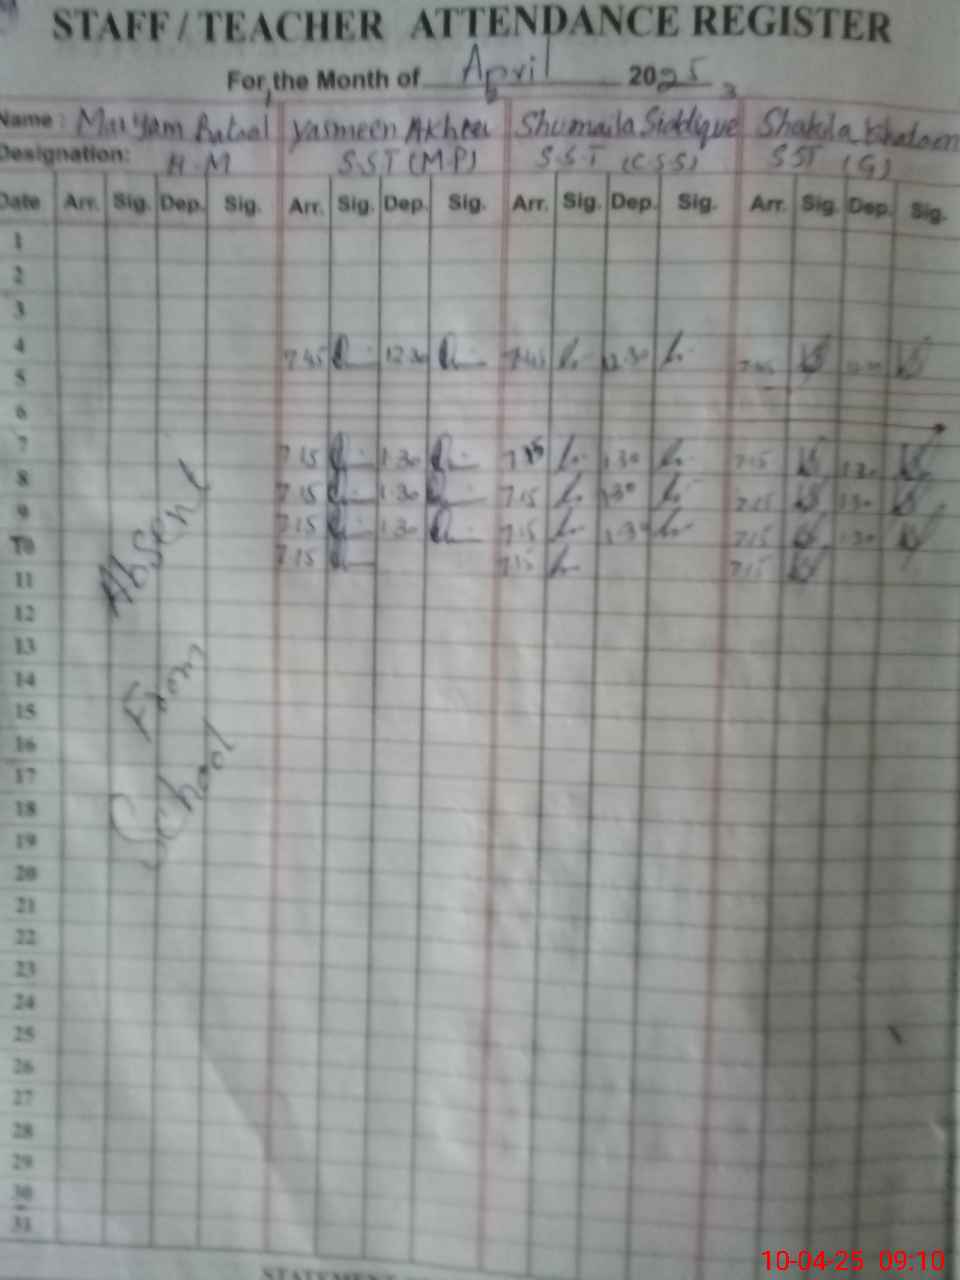 STAFF / TEACHER ATTENDANCE REGISTER
For the Month of April 2025
Name: Maryam Batool Yasmeen Akhter Shumaila Siddique Shakila Khatoon
Designation: H.M S.S.T (M.P) S.S.T (C.S.S) SST (G)
Date Arr. Sig. Dep. Sig. Arr. Sig. Dep. Sig. Arr. Sig. Dep. Sig. Arr. Sig. Dep. Sig.
1
2
3
4 7.45 12.30 7.45 12.30
5
6
7 7.15 1.30 7.15 1.30 7.15 1.30
8 7.15 1.30 7.15 1.30 7.15 1.30
9 7.15 1.30 7.15 1.30 7.15 1.30
10 7.15 7.15 7.15
11
12
13
14
15
16
17
18
19
20
21
22
23
24
25
26
27
28
29
30
31
Absent
From
School
STATEMENT
10-04-25 09:10